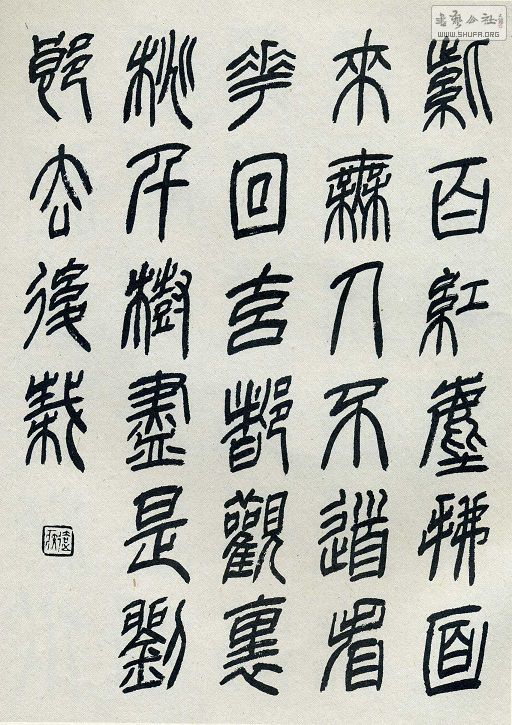 紫百紅塵拂面
來無人不道看
花回玄都觀裏
桃千樹盡是劉
郎去後栽
書藝公社
WWW.SHUFA.ORG